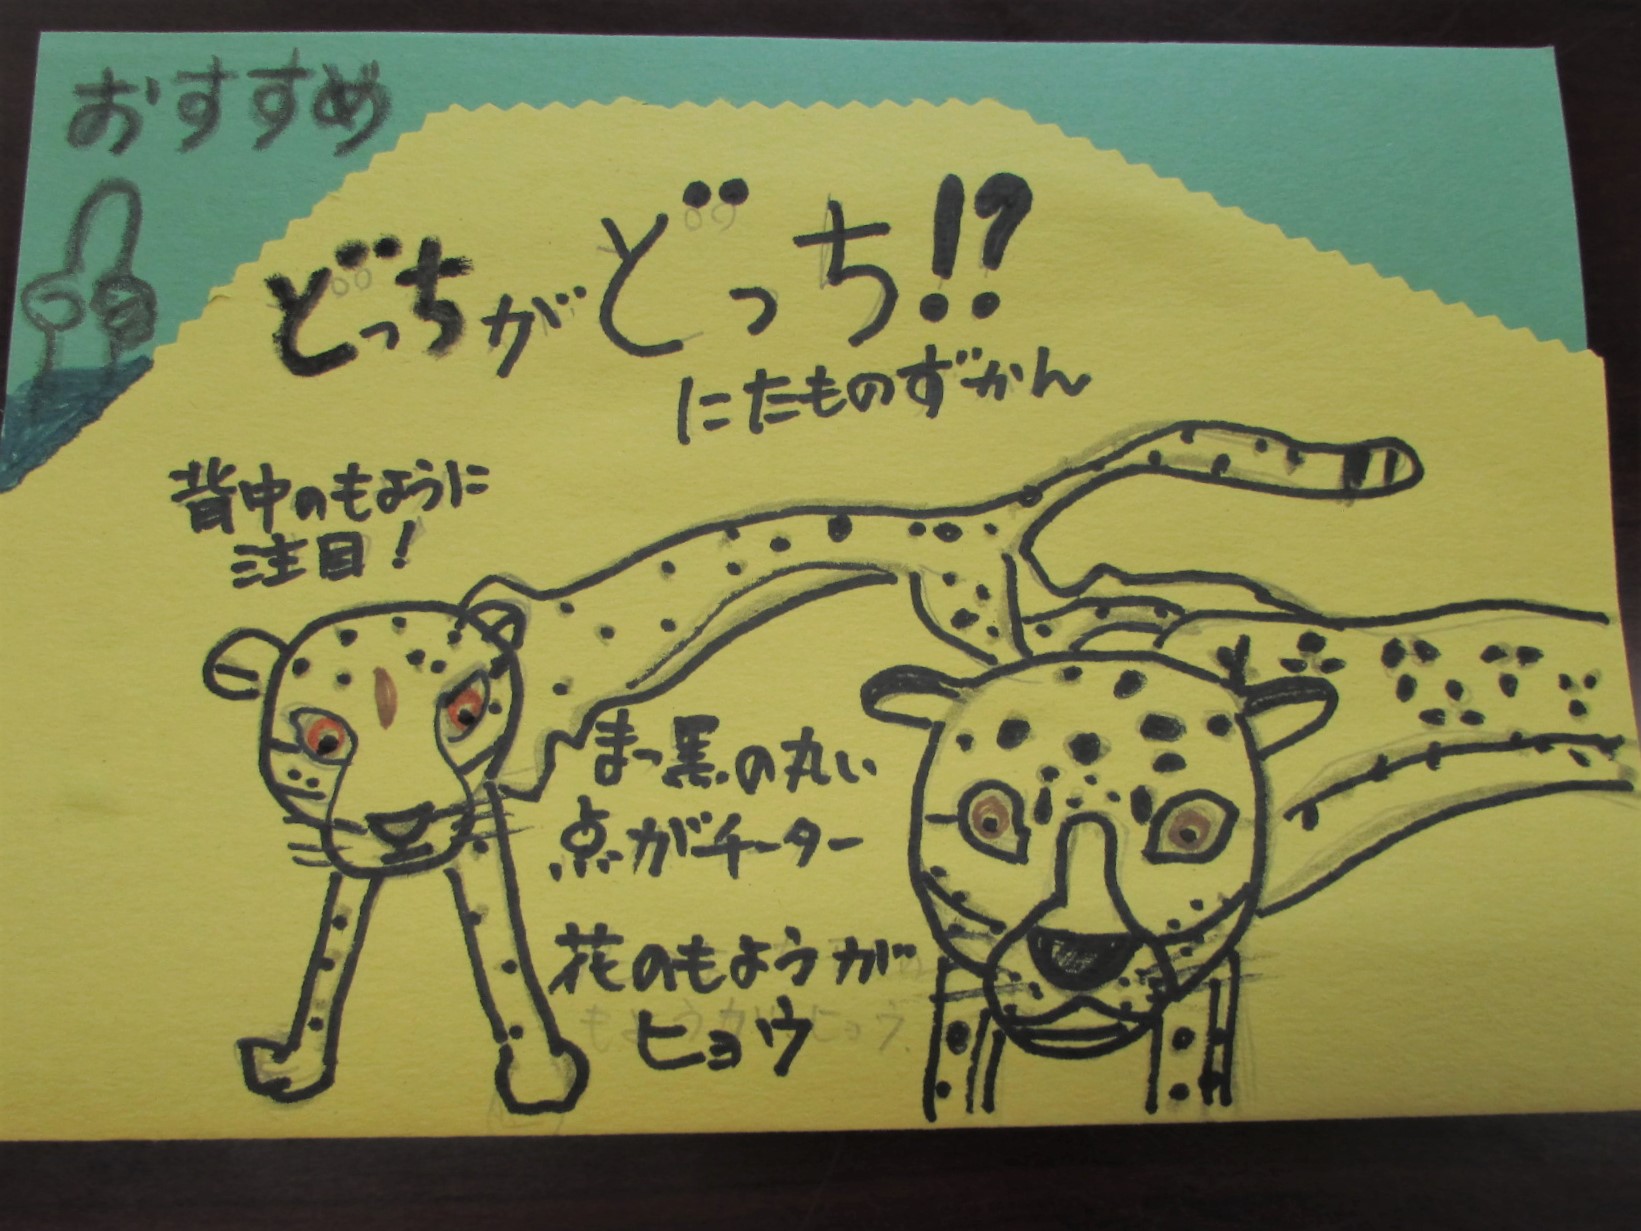 おすすめ
どっちがどっち!?
にたものずかん
背中のもように
注目!
まっ黒の丸い
点がチーター
花のもようが
ヒョウ